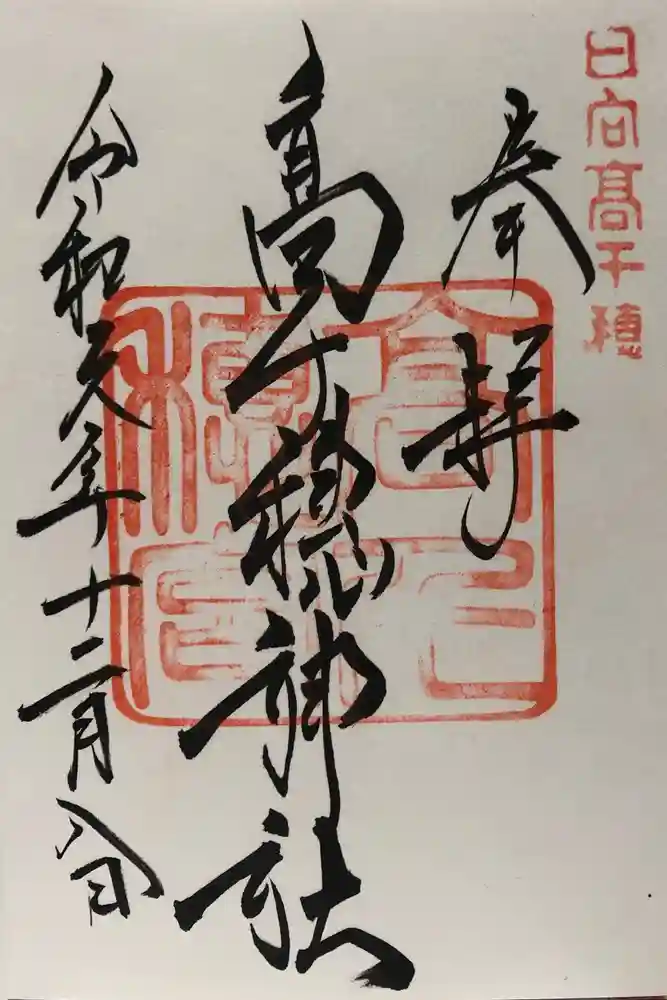 日向高千穂
奉拝
高千穂神社
令和元年十二月八日